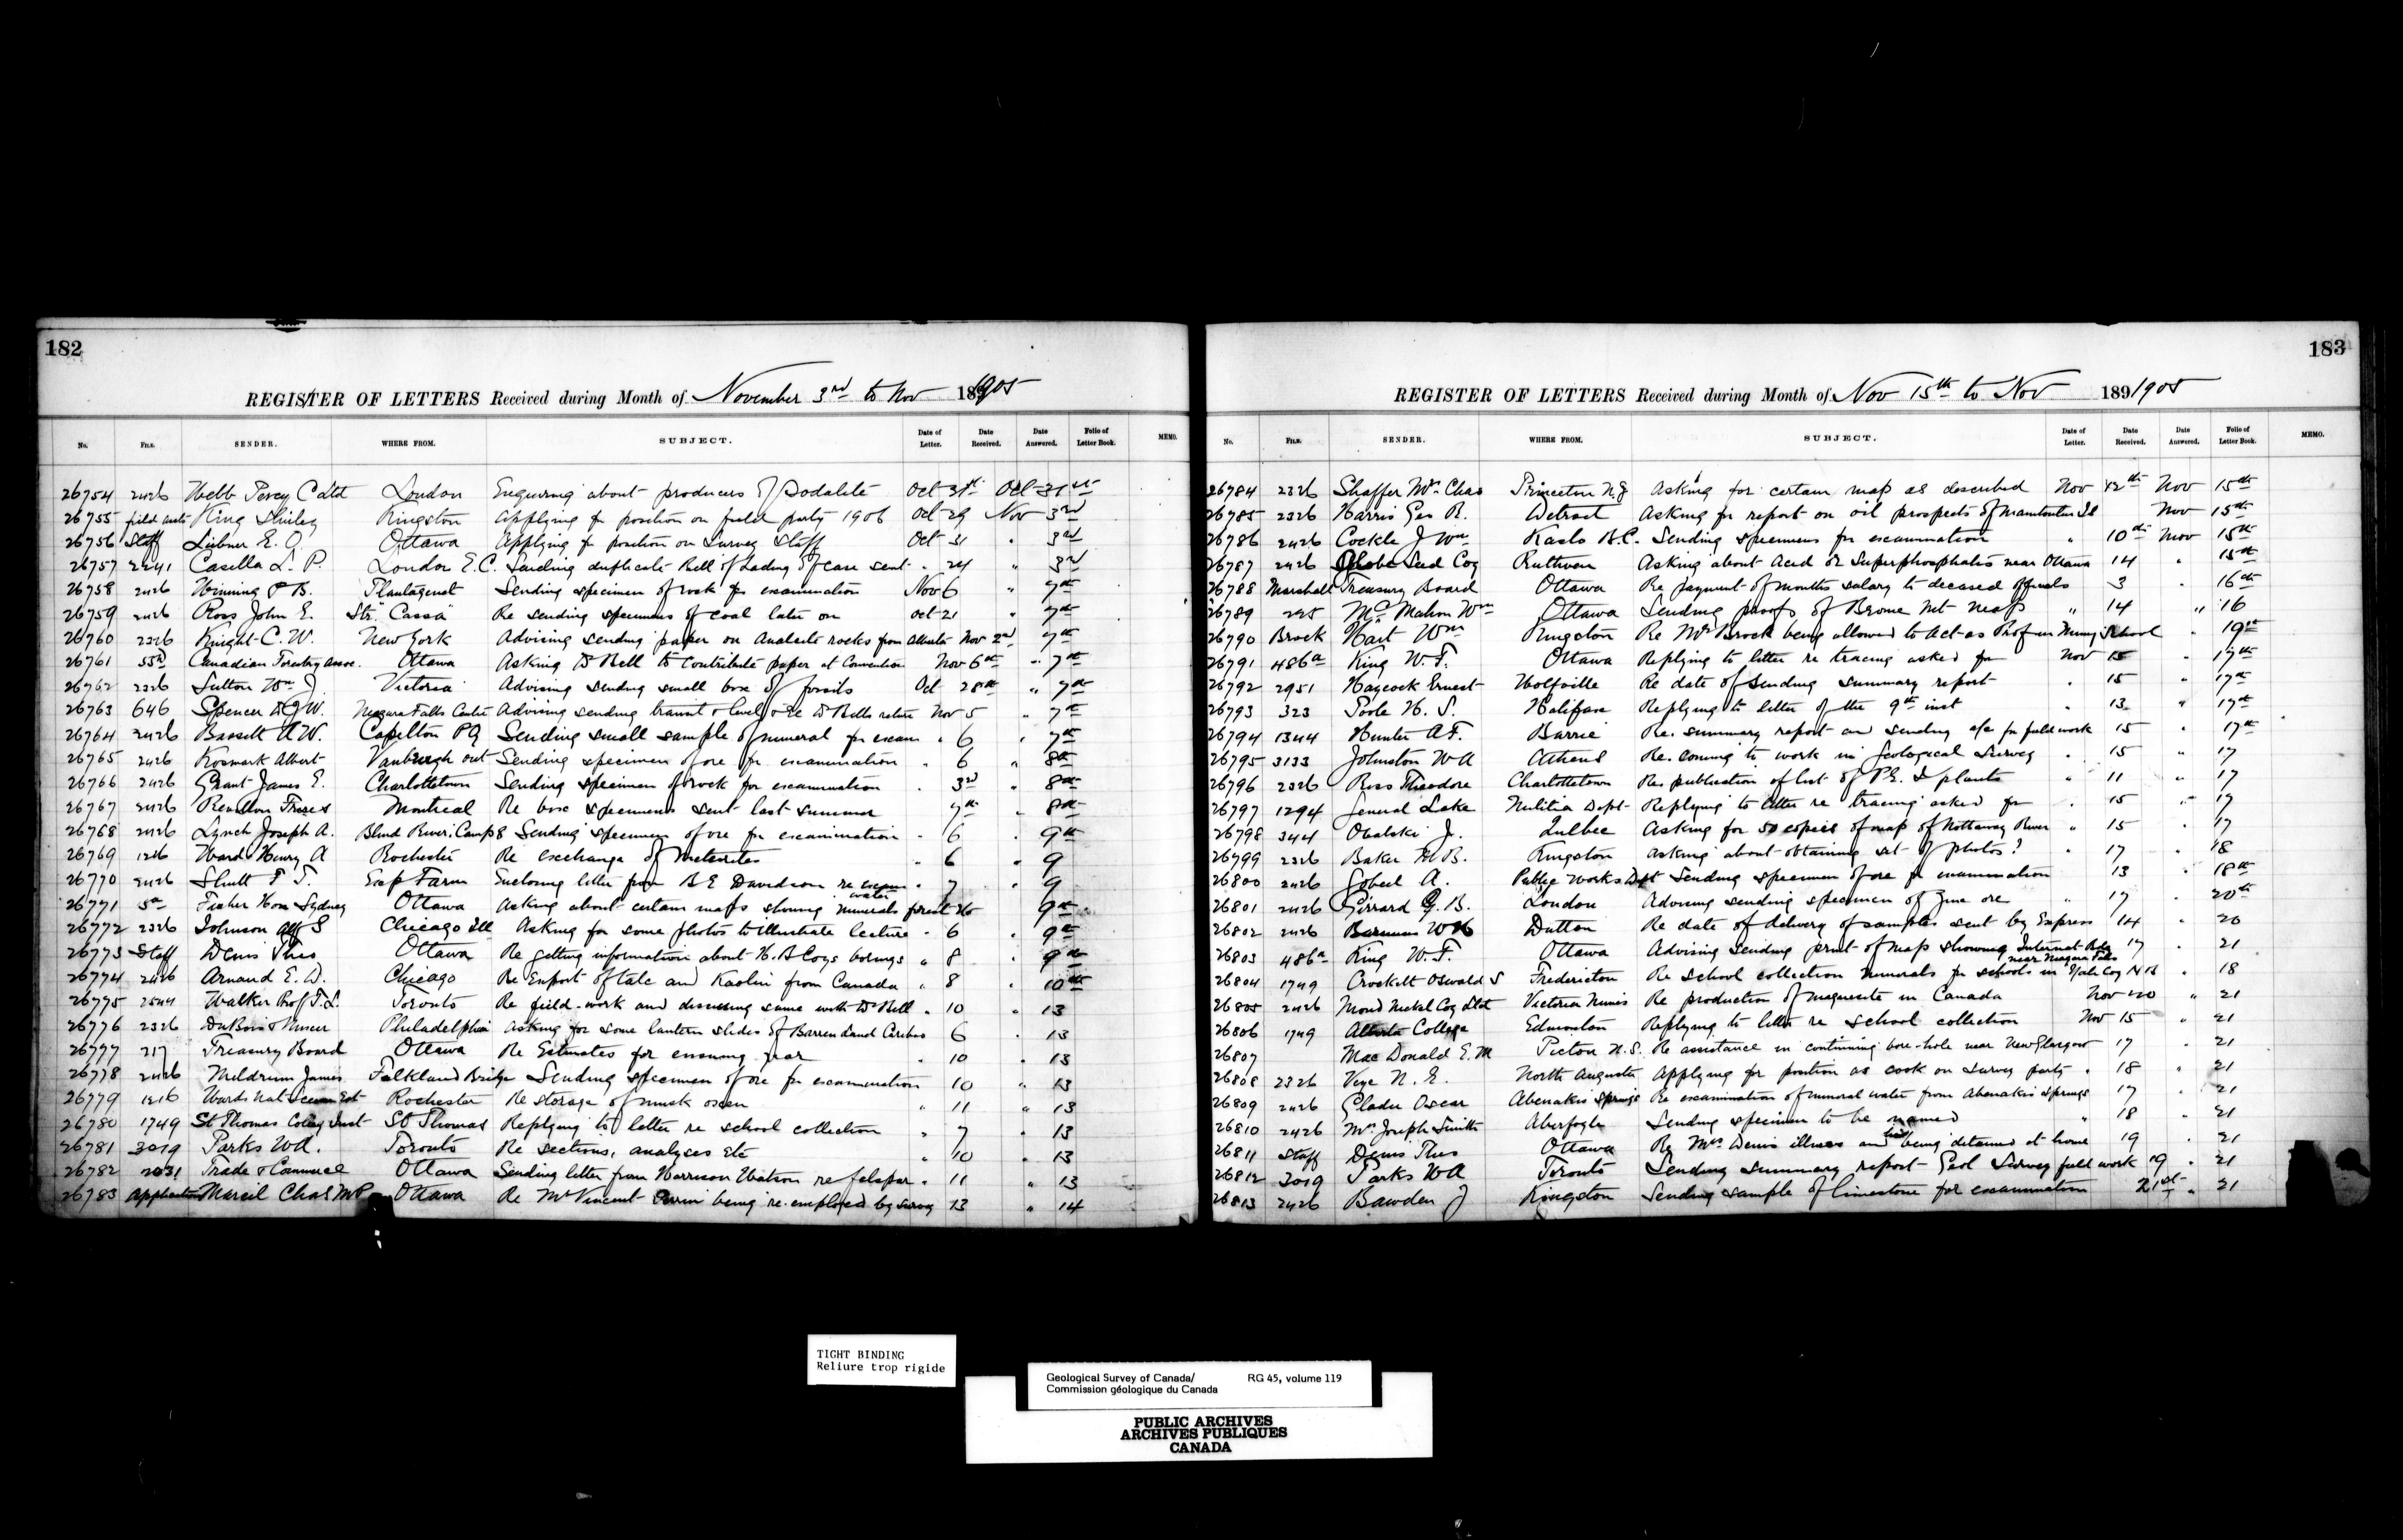 182
REGISTER OF LETTERS Received during Month of November 3rd to Nov 1891905
No. FILE. SENDER. WHERE FROM. SUBJECT. Date of Letter. Date Received. Date Answered. Folio of Letter Book. MEMO.
26754 2426 Webb Percy C Ltd London Enquiring about producers of Sodalite Oct 31st Oct 31st
26755 field King Shirley Kingston Applying for position on field party 1906 Oct 29 Nov 3rd
26756 Staff E. O. Ottawa Applying for position on Survey Staff Oct 31 " 3rd
26757 2241 Casella L. P. London E.C. Sending duplicate Bill of Lading of case sent " 24 " 3rd
26758 2426 Winning B. Plantagenet Sending specimen of rock for examination Nov 6 " 7th
26759 2426 Ross John E. Str. "Cassa" Re sending specimens of coal later on Oct 21 " 7th
26760 2326 Knight C. W. New York Advising sending paper on Analcite rocks from Alberta Nov 2nd " 7th
26761 Canadian Forestry Assoc. Ottawa Asking Dr Bell to contribute paper at Convention Nov 6th " 7th
26762 2326 Sutton Wm J. Victoria Advising sending small box of fossils Oct 28th " 7th
26763 646 Spencer Dr J W. Niagara Falls Centre Advising sending transit & level & re Dr Bells return Nov 5 " 7th
26764 2426 Bassett A W. Capelton PQ Sending small sample of mineral for exam " 6 " 7th
26765 2426 Kosmark Albert Vanbrugh Ont Sending specimen of ore for examination " 6 " 8th
26766 2426 Grant James E. Charlottetown Sending specimen of rock for examination " 3rd " 8th
26767 2426 Revillon Freres Montreal Re box specimens sent last summer 7th " 8th
26768 2426 Lynch Joseph A. Blind River, Camp 8 Sending specimen of ore for examination " 6 " 9th
26769 1216 Ward Henry A Rochester Re exchange of Meteorites " 6 " 9
26770 2426 Shutt F T. Exp Farm Enclosing letter from B E Davidson re exam water " 7 " 9
26771 5a Fisher Hon Sydney Ottawa Asking about certain maps showing minerals forest &c 9th
26772 2326 Johnson Alf S Chicago Ill Asking for some photos to illustrate lecture " 6 " 9th
26773 Staff Denis Theo Ottawa Re getting information about H. B Coys borings " 8 " 9th
26774 2426 Arnaud E. D. Chicago Re Export of talc and Kaolin from Canada " 8 " 10th
26775 2544 Walker Prof T. L. Toronto Re field-work and discussing same with Dr Bell " 10 " 13
26776 2326 DuBois & Philadelphia Asking for some lantern slides of Barren Land Caribou 6 " 13
26777 217 Treasury Board Ottawa Re Estimates for ensuing year " 10 " 13
26778 2426 Meldrum James Falkland Bridge Sending specimen of ore for examination 10 " 13
26779 1216 Wards Nat Scien Est Rochester Re storage of musk oxen " 11 " 13
26780 1749 St Thomas Coleg Inst St Thomas Replying to letter re school collection " 7 " 13
26781 3019 Parks W A. Toronto Re sections, analyses etc " 10 " 13
26782 2031 Trade & Commerce Ottawa Sending letter from Harrison Watson re felspar " 11 " 13
26783 Application Marcil Chas M P Ottawa Re Mr Vincent Perrin being re-employed by survey 13 " 14
183
REGISTER OF LETTERS Received during Month of Nov 15th to Nov 1891905
No. FILE. SENDER. WHERE FROM. SUBJECT. Date of Letter. Date Received. Date Answered. Folio of Letter Book. MEMO.
26784 2326 Shaffer Mrs Chas Princeton N.J Asking for certain map as described Nov 12th Nov 15th
26785 2326 Harris Geo R. Detroit Asking for report on oil prospects of Manitoulin Isl Nov 15th
26786 2426 Cockle J Wm Kaslo B.C. Sending specimens for examination " 10th Nov 15th
26787 2426 Globe Seed Coy Ruthven Asking about Acid or Superphosphates near Ottawa 14 " 15th
26788 Marshall Treasury Board Ottawa Re payment of months salary to deceased officials 3 " 16th
26789 225 McMahon Wm Ottawa Sending proofs of Brome Mt Map " 14 " 16
26790 Brock Hart Wm Kingston Re Mr Brock being allowed to act as Prof in Mining School " 19th
26791 486a King W. F. Ottawa Replying to letter re tracing asked for Nov 15 " 17th
26792 2951 Haycock Ernest Wolfville Re date of sending summary report " 15 " 17th
26793 323 Poole H. S. Halifax Replying to letter of the 9th inst " 13 " 17th
26794 1344 Hunter A F. Barrie Re. summary report and sending a/c for field work 15 " 17th
26795 3133 Johnston W A Athens Re. coming to work in Geological Survey " 15 " 17
26796 2326 Ross Theodore Charlottetown Re. publication of list of P.E. I plants " 11 " 17
26797 1294 General Lake Militia Dept Replying to letter re tracing asked for " 15 " 17
26798 344 Obalski J. Quebec Asking for 50 copies of map of Nottaway River " 15 " 17
26799 2326 Baker M B. Kingston Asking about obtaining set of photos? " 17 " 18
26800 2426 Gobeil A. Public Works Dept Sending specimen of ore for examination 13 " 18th
26801 2426 Girrard G. B. London Advising sending specimen of Zinc ore " 17 " 20th
26802 2426 W H Dutton Re date of delivery of samples sent by Express 14 " 20
26803 486a King W. F. Ottawa Advising sending print of map showing Internat Bdy near Niagara Falls 17 " 21
26804 1749 Crockett Oswald S Fredericton Re school collection minerals for schools in York Coy N B " 18
26805 2426 Mond Nickel Coy Ltd Victoria Mines Re production of magnesite in Canada Nov 20 " 21
26806 1749 Alberta College Edmonton Replying to letter re school collection Nov 15 " 21
26807 MacDonald E. M Pictou N.S. Re assistance in continuing bore-hole near New Glasgow 17 " 21
26808 2326 N. E. North Augusta Applying for position as cook on survey party " 18 " 21
26809 2426 Gladu Oscar Abenakis Springs Re examination of mineral water from Abenakis springs 17 " 21
26810 2426 Mrs Joseph Smith Aberfoyle Sending specimen to be named " 18 " 21
26811 Staff Denis Theo Ottawa Re Mrs Denis illness and his being detained at home 19 " 21
26812 3019 Parks W A Toronto Sending summary report - Geol Survey field work 19 " 21
26813 2426 Bawden J Kingston Sending sample of limestone for examination 21st " 21
TIGHT BINDING
Reliure trop rigide
Geological Survey of Canada/ RG 45, volume 119
Commission géologique du Canada
PUBLIC ARCHIVES
ARCHIVES PUBLIQUES
CANADA